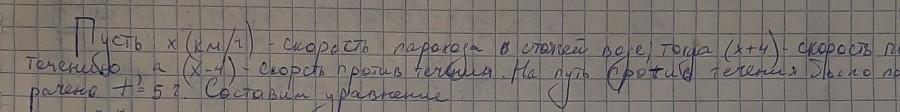 Пусть x (км/ч) - скорость парохода в стоячей воде, тогда (x+4) - скорость п
течению, а (x-4) - скорсть против течения. На путь против течения было по
рачено t = 5 ч. Составим уравнение